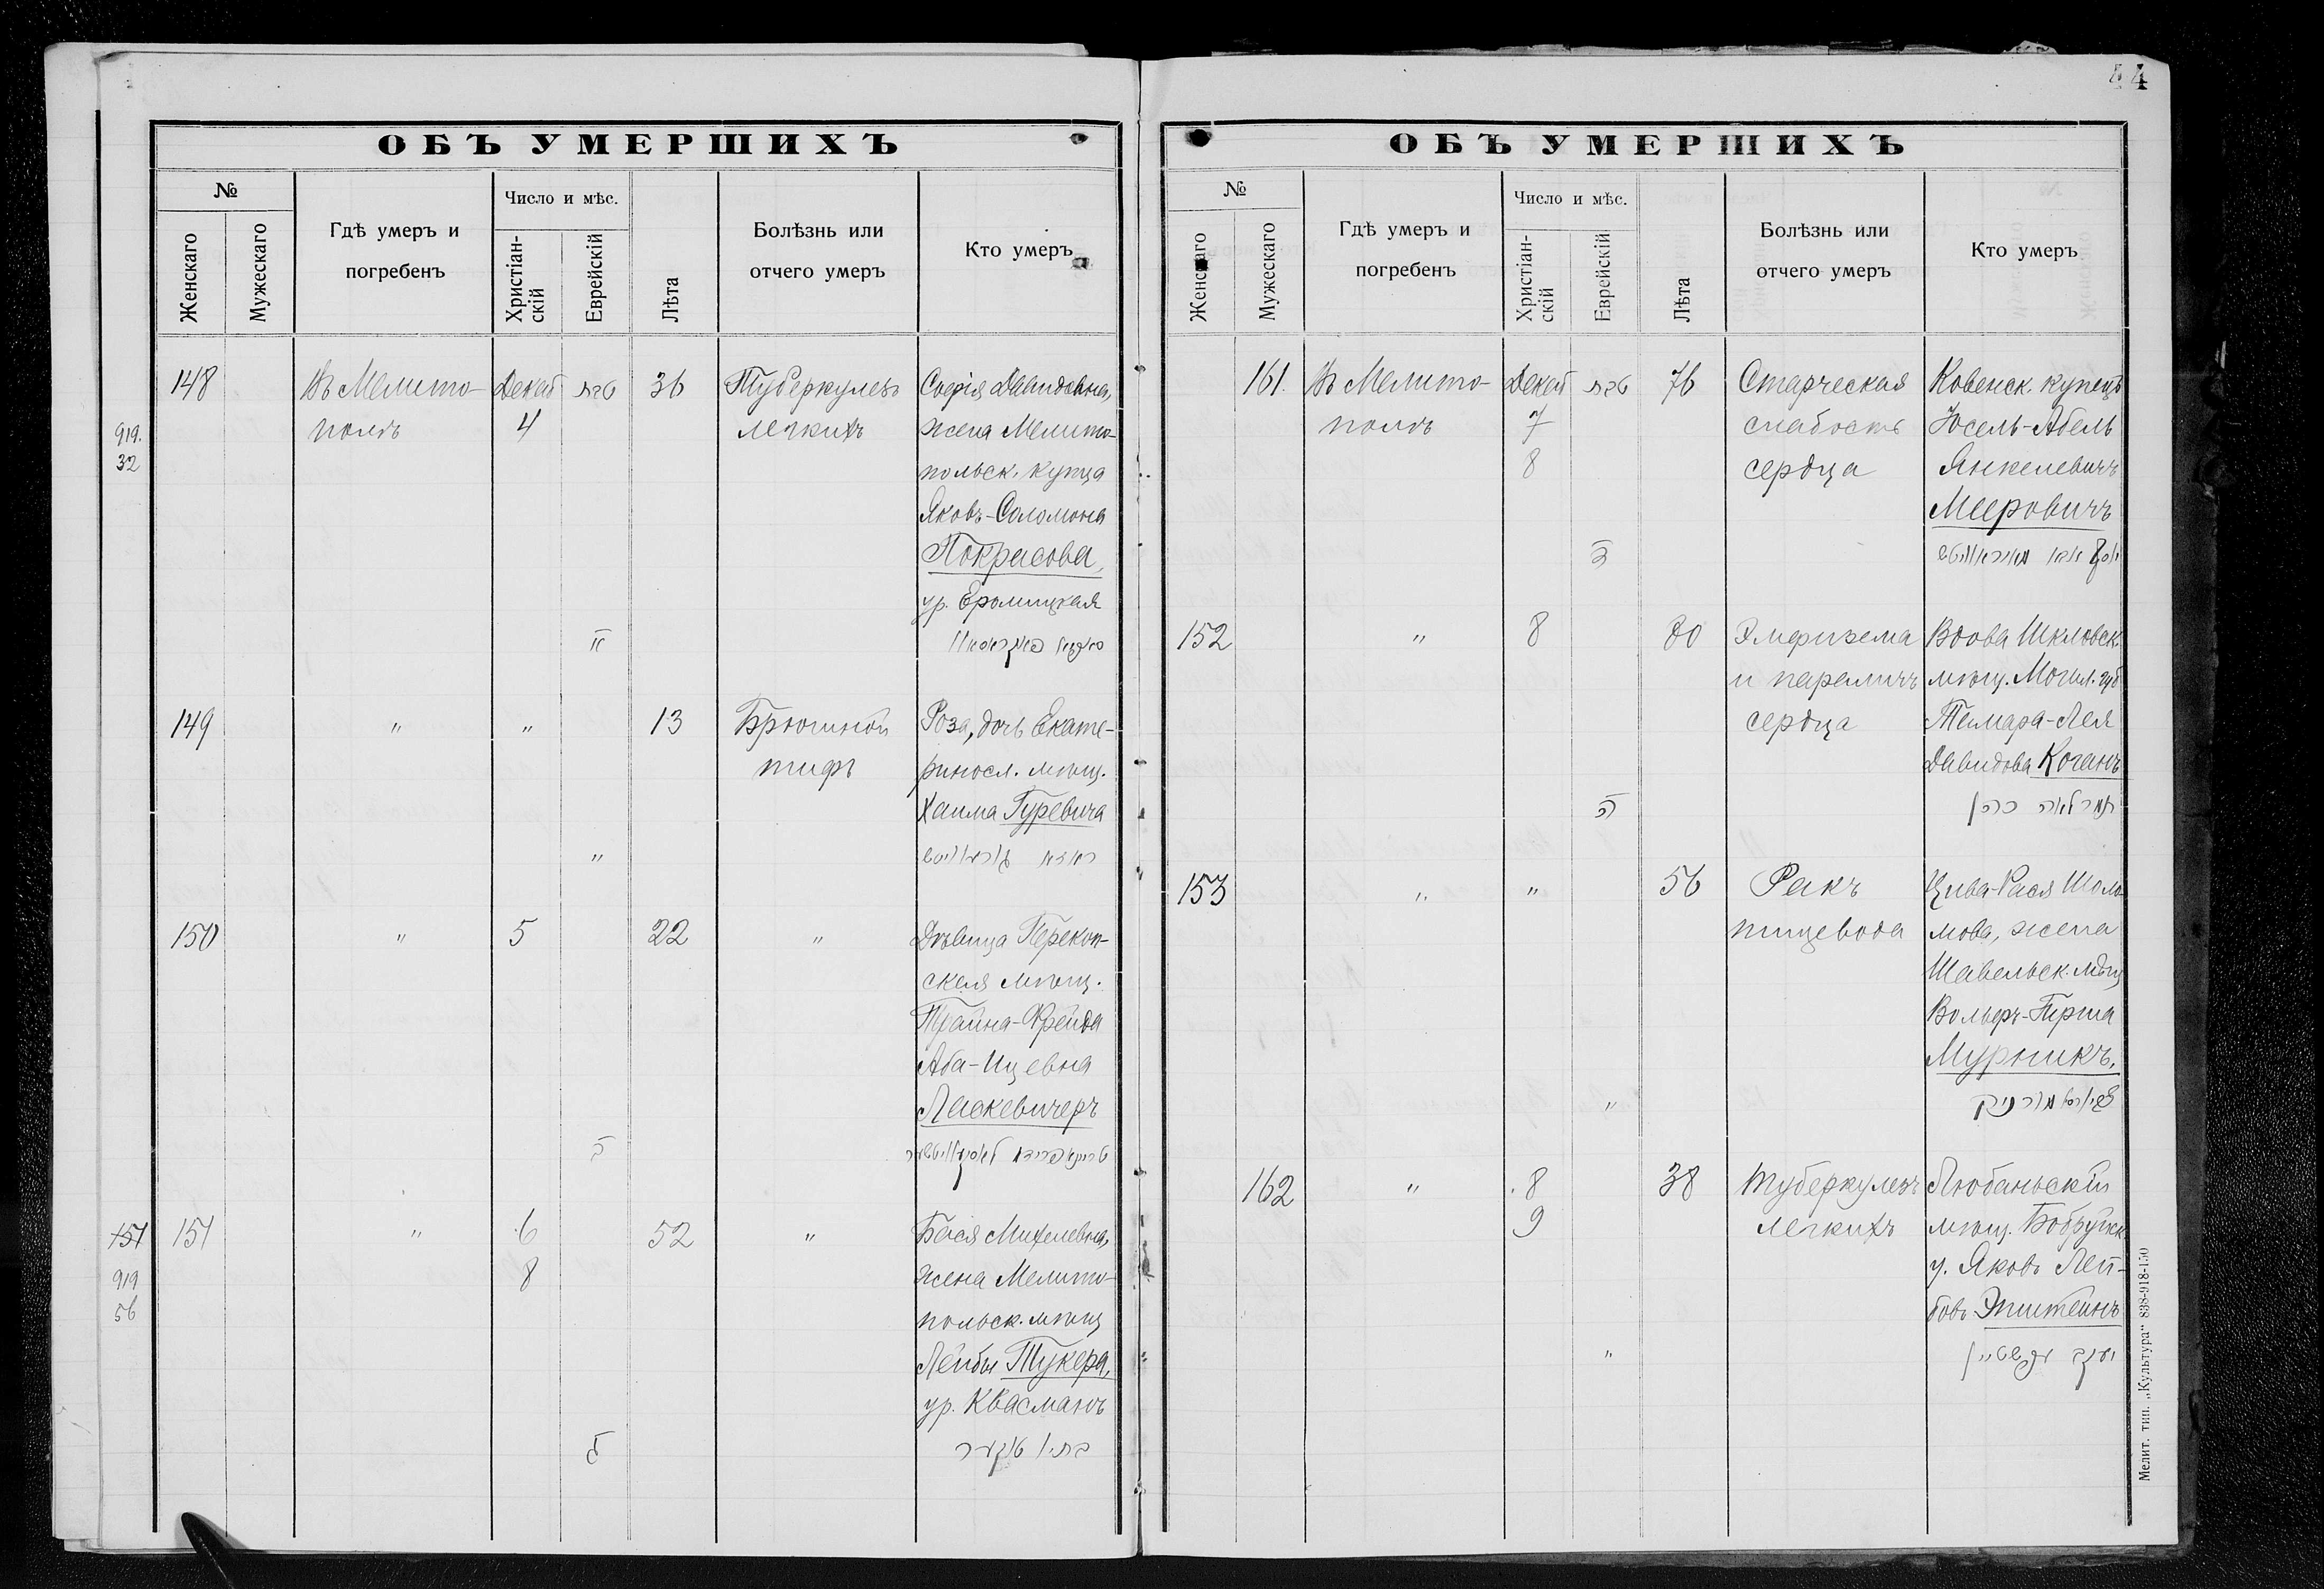 44
ОБЪ УМЕРШИХЪ
№
Женскаго
Мужескаго
Гдѣ умеръ и
погребенъ
Число и мѣс.
Христіан-
скій
Еврейскій
Лѣта
Болѣзнь или
отчего умеръ
Кто умеръ
148
919.
32
Въ Мелито-
полѣ
Декаб
4
טבת
36
Туберкулезъ
легкихъ
Софія Давидовна,
жена Мелито-
польск. купца
Яковъ-Соломона
Покрасова,
ур.
149
"
"
13
Брюшной
тифъ
Роза, дочь Екате-
риносл. мѣщ.
Хаима Гуревича
"
ראזא גורעוויטש
150
"
5
22
"
Дѣвица Перекоп-
ская мѣщ.
Трайна-Фрейда
Аба-Ицевна
Ласкевичеръ
151
151
919
56
"
6
8
52
"
Бася Михелевна,
жена Мелито-
польск. мѣщ
Лейбы Тукера,
ур. Квасманъ
ОБЪ УМЕРШИХЪ
№
Женскаго
Мужескаго
Гдѣ умеръ и
погребенъ
Число и мѣс.
Христіан-
скій
Еврейскій
Лѣта
Болѣзнь или
отчего умеръ
Кто умеръ
161.
Въ Мелито-
полѣ
Декаб
7
8
טבת
76
Старческая
слабость
сердца
Ковенск. купецъ
Іосель-Абель
Янкелевичъ
Мееровичъ
152
"
8
80
Эмфизема
и параличъ
сердца
Вдова Шкловск.
мѣщ. Могил. губ
Тамара-Лея
Давидова Коганъ
ה
תמר לאה כהן
153
"
"
56
Ракъ
пищевода
Цива-Рася Шоло
мова, жена
Шавельск. мѣщ
Вольфъ-Гирша
Мурникъ.
"
מורניק
162
"
8
9
38
Туберкулезъ
легкихъ
Любаньскій
мѣщ. Бобруйск
у. Яковъ Лей-
бовъ Эпштейнъ
"
יעקב עפשטיין
Мелит. тип. „Культура“ 838-918-150